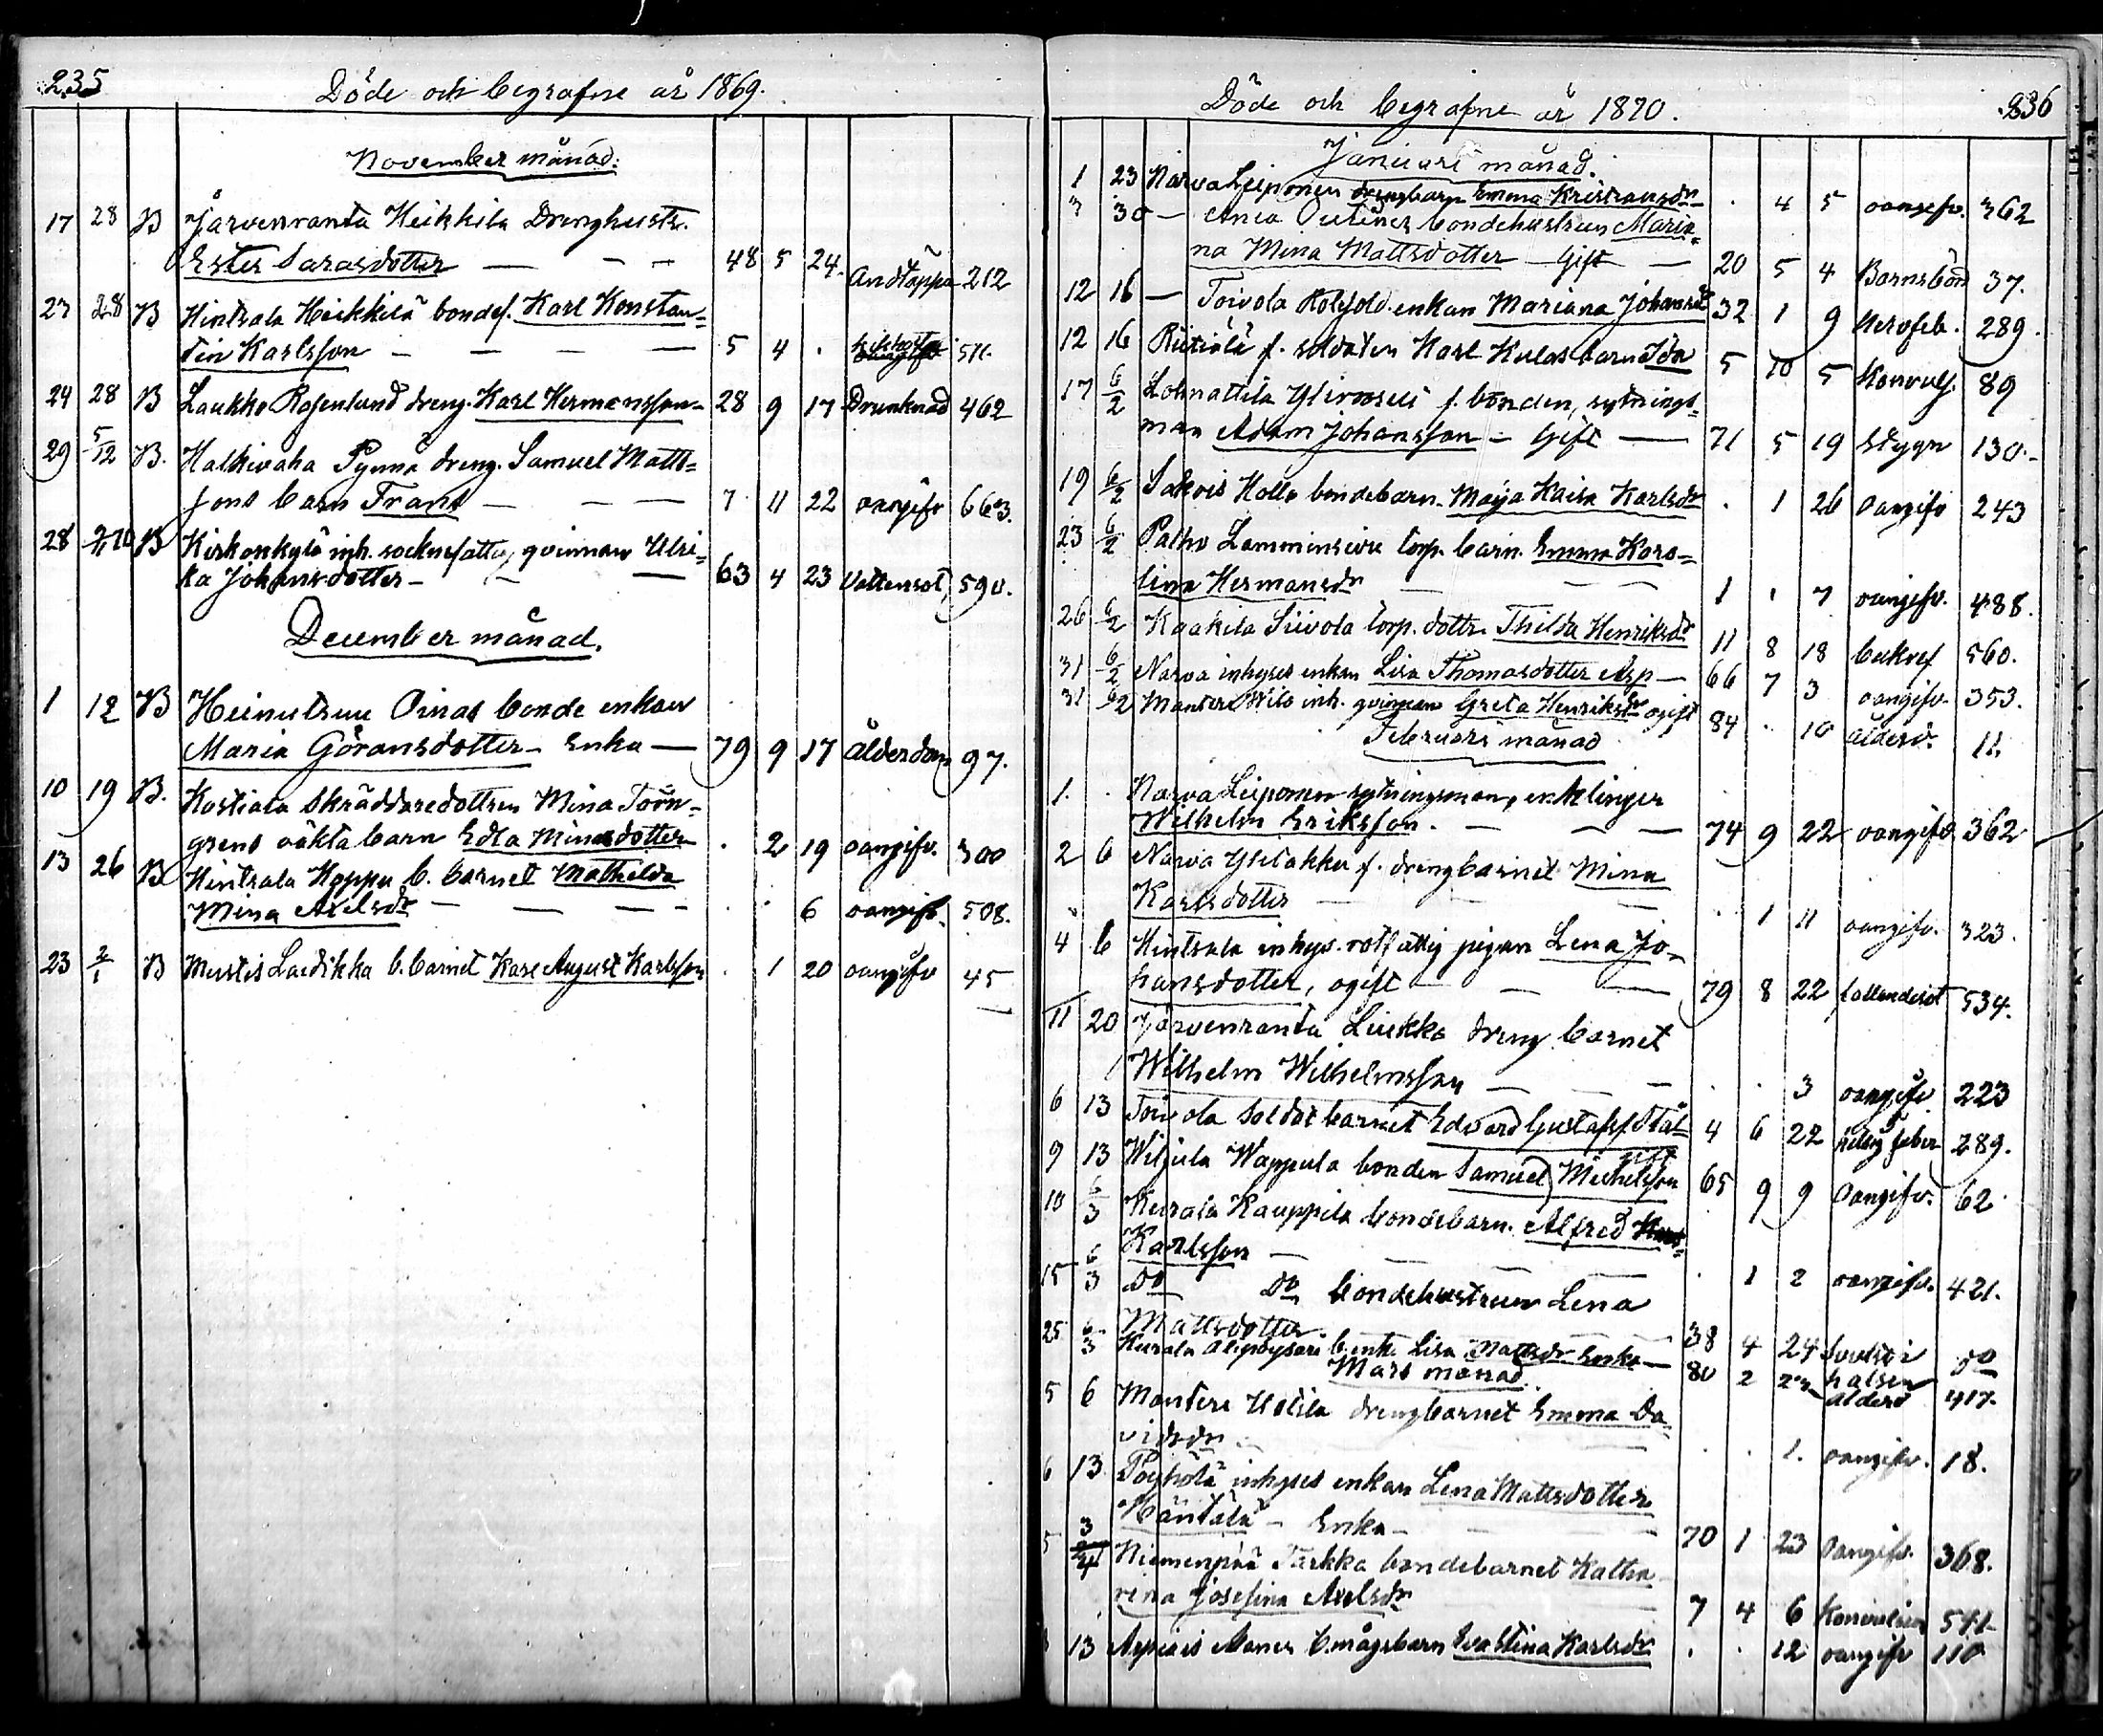 235
Döde och begrafne år 1869.
November månad.
17 28 B Järvenranta Heikkila Drenghustr.
Ester Sarasdotter — — — 48 5 24. Andtäppa 212
23 28 B Hintsala Heikkilä bondes. Karl Konstan-
tin Karlsson — — — 5 4 . 511.
24 28 B Laukko Rosenlund dreng. Karl Hermansson 28 9 17 Drunknad 462
29 5/12 B. Halkivaha Pynnä dreng. Samuel Matts-
sons barn Frans — — — 7 11 22 oangifv 663.
28 B Kirkonkylä inh. socknefattig, qvinnan Ulri-
ka Johansdotter — — — 63 4 23 Vattensot 590.
December månad.
1 12 B Heinutsuu Oinas bonde enkan
Maria Göransdotter — Enka — 79 9 17 Ålderdom 97.
10 19 B. Kostiala Skräddaredottren Mina Törn-
grens oäkta barn Edla Minasdotter . 2 19 oangifv. 300
13 26 B Hintsala Hoppu b. barnet Mathilda
Mina Axelsdr — — — . . 6 oangifv. 508.
23 2/1 B Mustis Laedikka b. barnet Karl August Karlsson . 1 20 oangifv 45
236
Döde och begrafne år 1870.
Januari månad.
1 23 Narva Leiponen drengbarn Emma Kristiansdr . 4 5 oangifv. 362
3 30 — Ania Outinen bondehustrun Maria-
na Mina Mattsdotter — Gift — 20 5 4 Barnsbörd 37.
12 16 — Toivola enkan Mariana Johansdr 32 1 9 Nervfeb. 289.
12 16 Riitiälä f. soldaten Karl Kulas barn Ida 5 10 5 Konvuls. 89
17 6/2 Lohnattila Yliroosii f. bonden, sytnings-
man Adam Johansson — Gift — 71 5 19 Stygn 130.
19 6/2 Sakois Kollo bondebarn. Maja Kaisa Karlsdr . 1 26 oangifv 243
23 6/2 Palho Lamminsivu torp. barn. Emma Karo-
lina Hermansdr — — 1 1 7 oangifv. 488.
26 6/2 Kaakila Siivola torp. dottr. Thilda Henriksdr 11 8 18 560.
31 6/2 Narva inhyses enkan Lisa Thomasdotter Asp — 66 7 3 oangifv. 353.
31 6/2 Mantere Wilo inh. qvinnan Greta Henriksdr ogift 84 . 10 ålderd. 11.
Februari månad
1. . Narva Leiponen sytningsman, enklingen
Wilhelm Eriksson. — — — 74 9 22 oangifv. 362
2 6 Narva Ylitakku f. drengbarnet Mina
Karlsdotter — — — . 1 11 oangifv. 323.
4 6 Hintsala inhys. rotfattig pigan Lena Jo-
hansdotter, ogift — — — 79 8 22 fallandesot 534.
11 20 Järvenranta Luukka dreng barnet
Wilhelm Wilhelmsson — — . . 3 oangifv. 223
6 13 Toivola soldat barnet Edvard Gustafss. Stål 4 6 22 feber 289.
9 13 Wiljula Wappula bonden Samuel Michelsson gift 65 9 9 oangifv. 62.
10 6/3 Kurala Kauppila bondebarn. Alfred
Karlsson — — — . 1 2 oangifv. 421.
15 6/3 do do bondehustrun Lena
Mattsdotter. — — 38 4 24 halsen do
25 6/3 Kurala b. enk. Lisa Mattsdr Enka — 80 2 23 ålderd 417.
Mars månad.
5 6 Mantere Uotila drengbarnet Emma Da-
vidsdr. — — . . 1. oangifv. 18.
6 13 Pöyhölä inhyses enkan Lena Mattsdotter
Mäntälä — Enka — — 70 1 23 oangifv. 368.
5 3/4 Niemenpää Tarkka bondebarnet Katha-
rina Josefina Axelsdr 7 4 6 Konvulsion 541.
13 b. mågsbarn Eva Stina Karlsdr . . 12 oangifv 110